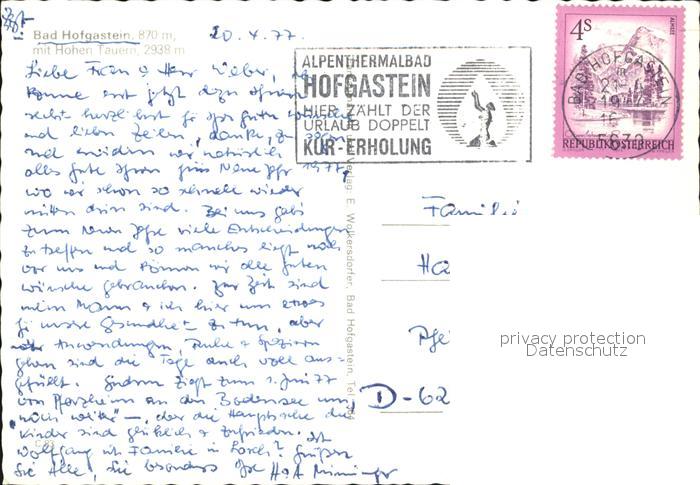 Bad Hofgastein, 870 m,
mit Hohen Tauern, 2938 m
20.4.77.
Liebe Frau & Herr Weber, ich
komme erst jetzt dazu Ihnen
recht herzlichst für Ihre guten
und lieben Zeilen, danke, zu
und wir natürlich
alles gute Ihnen fürs Neue Jahr 1977,
wo wir schon so schnelle wieder
mitten drin sind. Bei uns gabs
zum Neuen Jahre viele Entscheidungen
zu treffen und so manches liegt noch
vor uns und können wir alle guten
wünsche gebrauchen. Zur Zeit sind
mein Mann & ich hier um etwas
für unsere Gesundheit zu tun, aber
Anwendungen, Ruhe & Spazieren
gehen sind die Tage auch voll aus=
gefüllt. zieht zum 1. Juni 77
von Pforzheim an den Bodensee um,
"noch weiter" –, aber die Hauptsache die
Kinder sind glücklich & zufrieden. Ist
Wolfgang mit Familie in Lorch? Grüßen
Sie Alle, Sie besonders Ihre H & A
Verlag: E. Wolkersdorfer, Bad Hofgastein, Tel.
ALPENTHERMALBAD
HOFGASTEIN
HIER ZÄHLT DER
URLAUB DOPPELT
KUR-ERHOLUNG
4S
ALMSEE
REPUBLIK ÖSTERREICH
BAD HOFGASTEIN
5630
Famili
Ha
D-62
privacy protection
Datenschutz